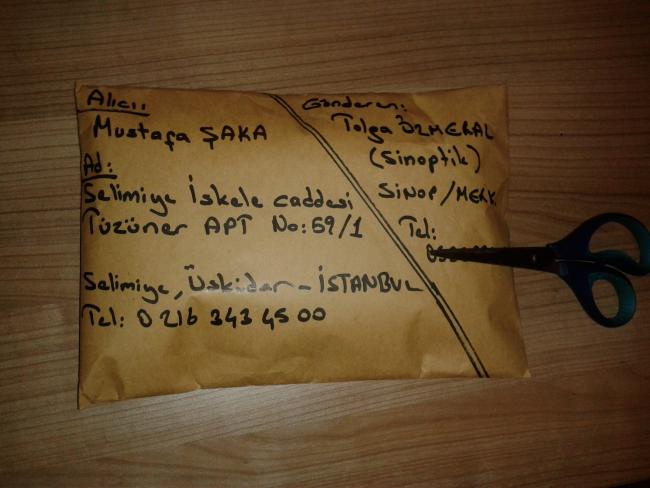 Alıcı:
Mustafa ŞAKA
Ad:
Selimiye İskele caddesi
Tüzüner APT No:69/1
Selimiye, Üsküdar - İSTANBUL
Tel: 0 216 343 45 00
Gönderen:
Tolga ÖZMERAL
(Sinoptik)
SİNOP/MERK.
Tel: